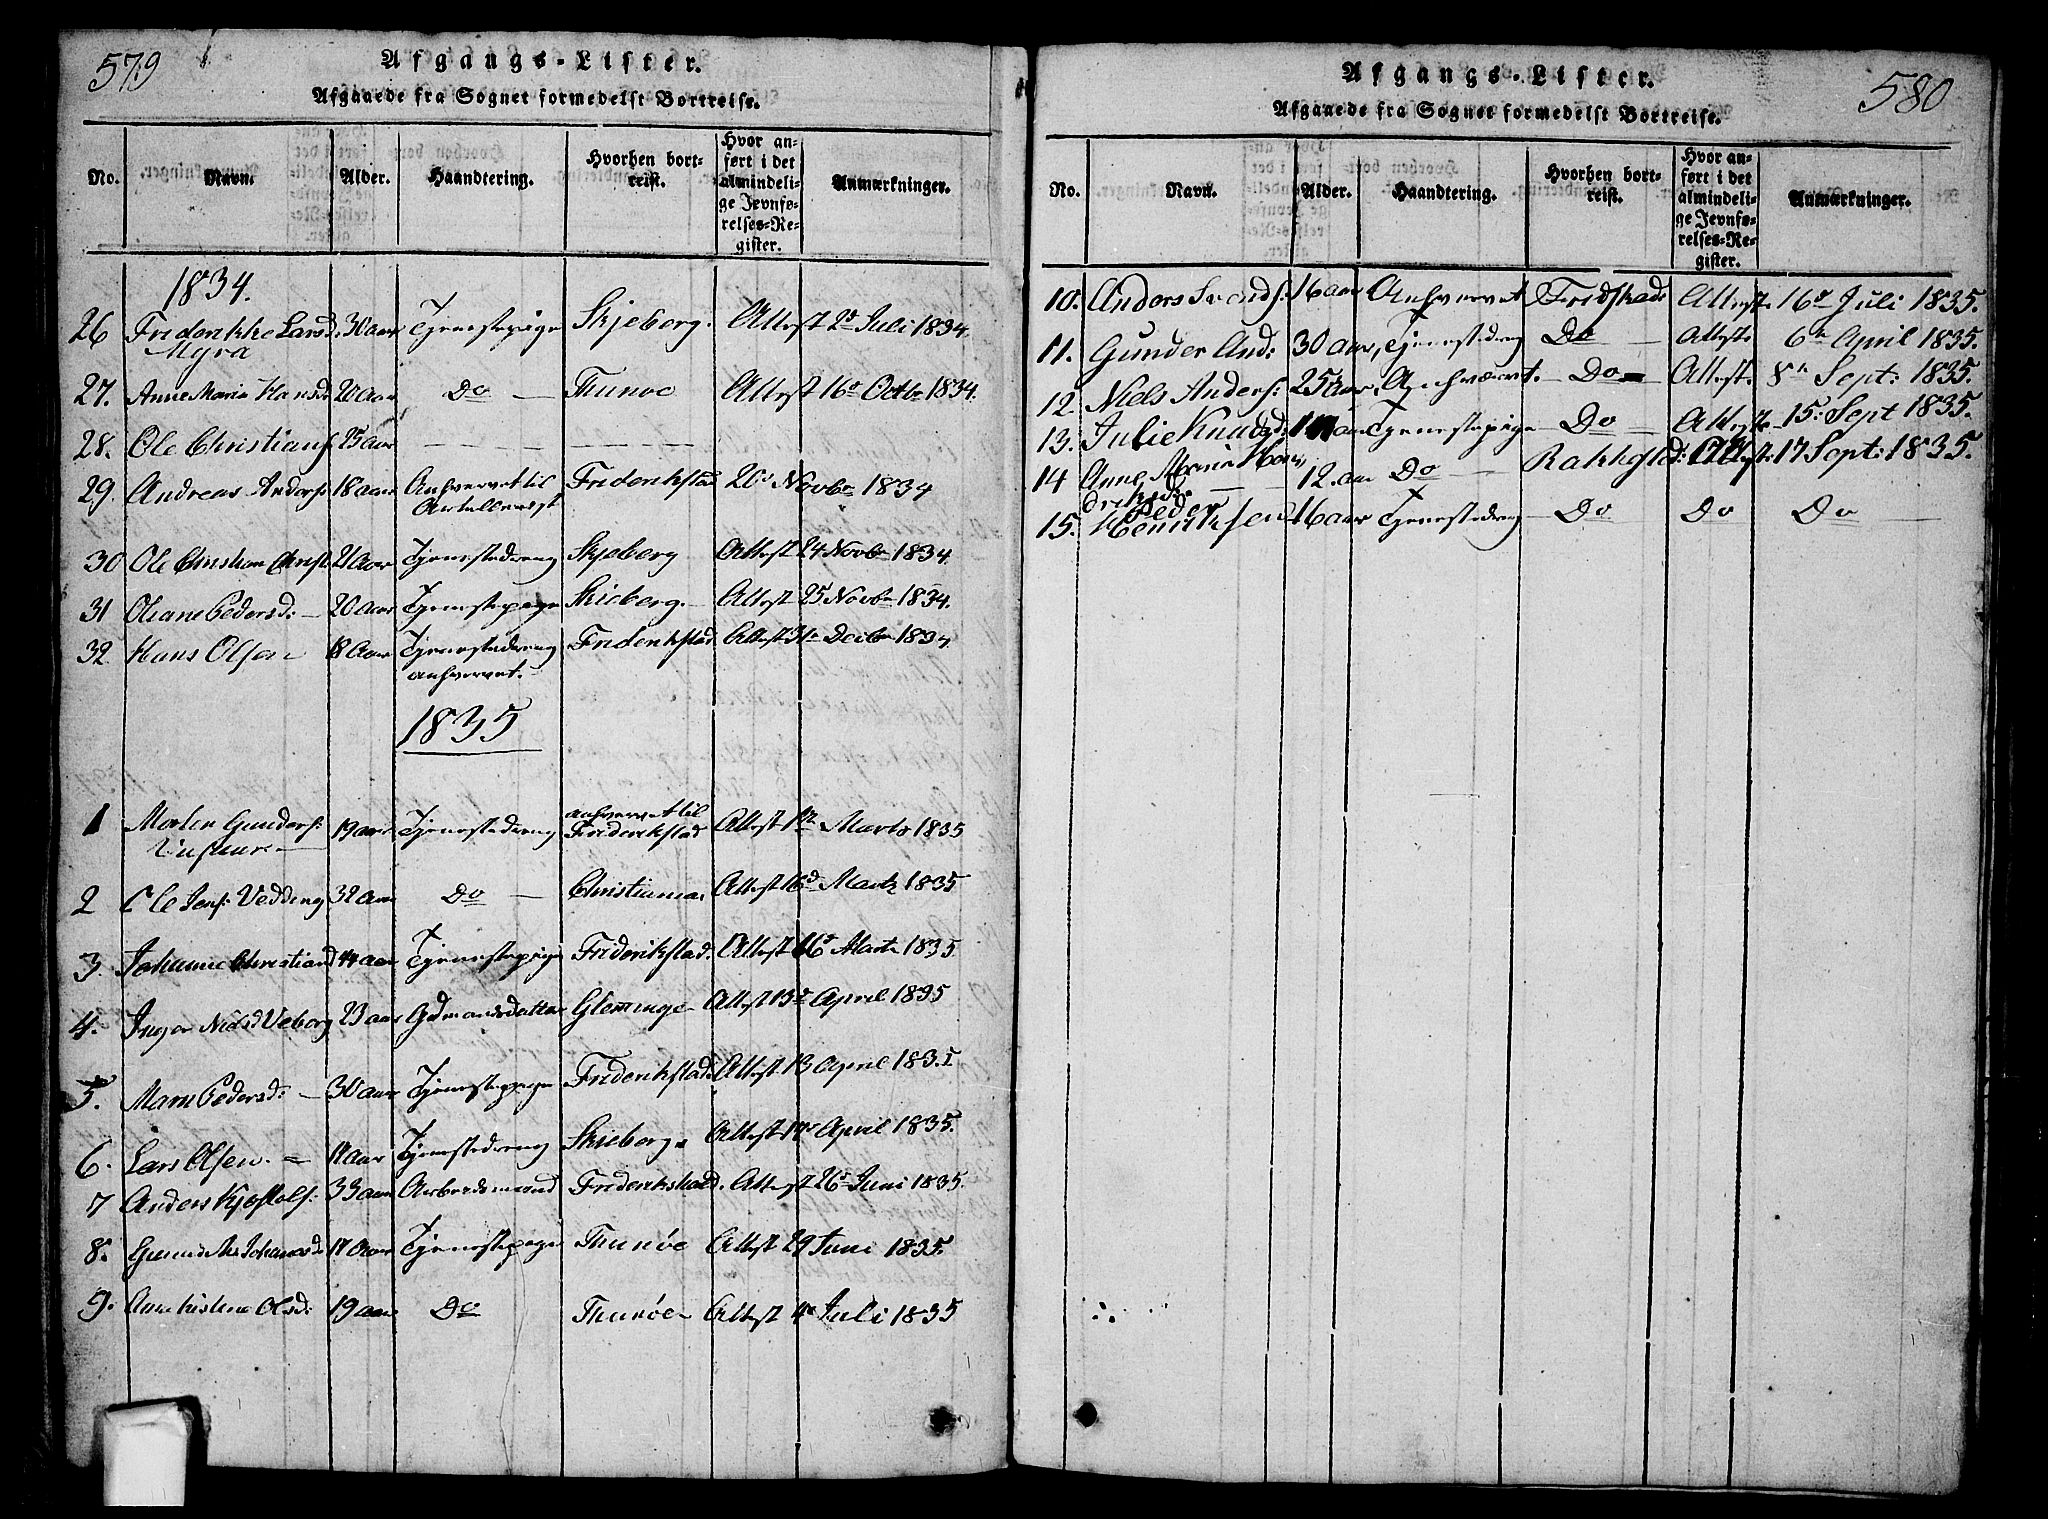 579
Afgangs-Lister.
Afgaaede fra Sognet formedelst Bortreise.
No. Navn. Alder. Haandtering. Hvorhen bortreist. Hvor anført i det almindelige Jevnførelses-Register. Anmærkninger.
1834.
26 Fridenkke Larsd. 30 aar Tjenestepige Skjeberg. Attest 2d Juli 1834.
Myra
27. Anne Maria Hansd. 20 aar Do — Thunoe Attest 16d Octbr 1834.
28. Ole Christians 25 aar — — — —
29. Andreas Anders: 18 aar Anhvervet til Fridenkstad 20d Novbr 1834
Artilleriest
30 Ole Christian Christ 21 aar Tjenestedreng Skjeberg Attest 24 Novbr 1834.
31 Oliane Pedersd: — 20 aar Tjenestepige Skieberg. — Attest 25 Novbr 1834.
32. Hans Olsen 18 aar Tjenestedreng Fridenkstad Attest 31 Decbr 1834
anhvervet.
1835
1 Morten Gunders: 19 aar Tjenestedreng anhvervet til Attest Marts 1835
Frederikstad
2 Ole Jens: Vedding 32 aar Do — Christiania. Attest 16d Marts 1835
3. Johanne Christiand 44 aar Tjenestepige Friderikstad. Attest 16d Marts 1835.
4. Inger Nielsd Veborg 23 aar Gdmandsdatter Glemminge Attest 13d April 1835
5. Maren Pedersd: — 30 aar Tjenestepige Friderikstad. Attest 13 April 1835
6. Lars Olsen. = aar Tjenestedreng Skieberg. Attest April 1835.
7 Anders Kjostols: 33 aar Arbeidsmand Friderikshald. Attest 26d Juni 1835.
8. Johannesd: 17 aar Tjenestepige Thunöe Attest 29 Juni 1835.
9. Anne Kistine Olsd: 19 aar Do Thunöe Attest Juli 1835
580
Afgangs-Lister.
Afgaaede fra Sognet formedelst Bortreise.
No. Navn. Alder. Haandtering. Hvorhen bortreist. Hvor anført i det almindelige Jevnførelses-Register. Anmærkninger.
10. Anders Svends: 16 aar Anhvervet Attest 16d Juli 1835.
11. Gunder And: 30 aar, Tjenestedreng Do — Attest 6te April 1835.
12 Niels Anders: 25 aar, Anhvervet. Do — Attest. 8de Sept: 1835.
13. Julie Knudsd: aar Tjenestepige Do — Attest 15: Sept 1835.
14 Anne Maria Hen 12. aar Do — Rakkestd: Attest: 17 Sept: 1835.
15. Peder Henriksen 16 aar Tjenestedreng Do Do Do —